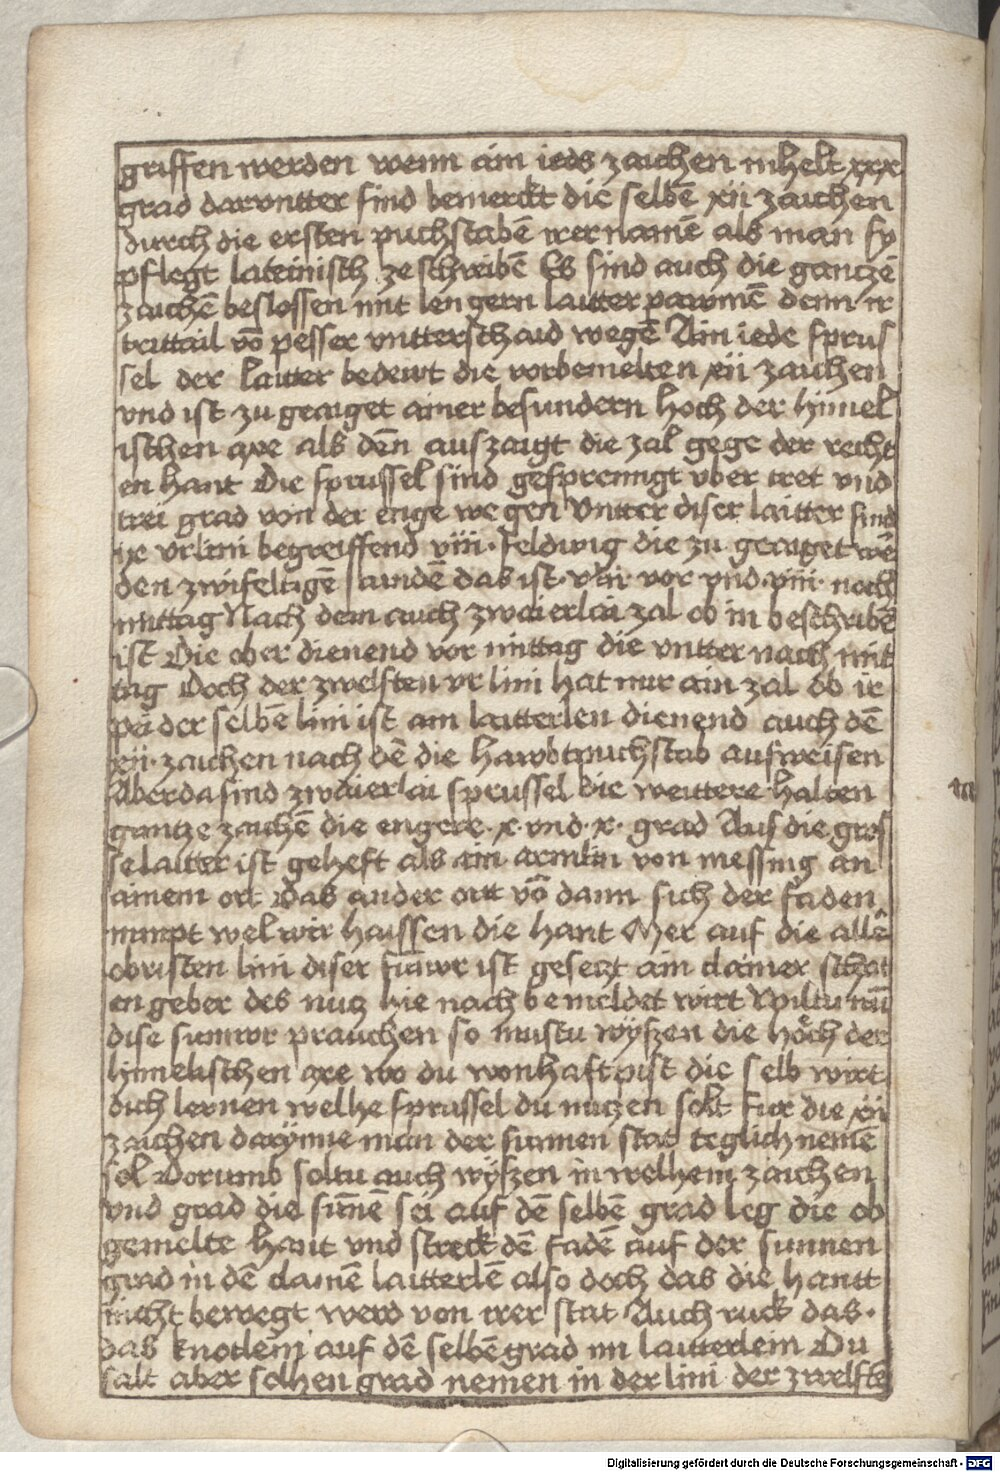 griffen werden wenn ain ieds zaichen inhelt xxx
grad darvntter sind bemerckt die selbē xii zaichen
durch die ersten puchstabē irer namē als man sy
pflegt lateinisch ze schreibē Es sind auch die gantzē
zaichē beslossen mit lengern laitter pawmē denn ir
trittail vō pesser vntterschaid wegē Ain iede sprus
sel der laitter bedewt die vorbemelten xii zaichen
vnd ist zu geaiget ainer besundern hoch der himel
ischen axe als dēn auszaigt die zal gege der recht
en hant Die sprussel sind gesprenngt vber tret vnd
trei grad von der enge wegen Vntter diser laitter sind
ix vrlini begreiffend viii feldung die zu geaiget wē
den zwifeltigē stundē das ist viii vor vnd viii noch
mittag Nach dem auch zwaierlai zal ob in beschribē
ist Die ober dienend vor mittag die vntter nach mit
tag Doch der zwelften vr lini hat nur ain zal Ob ir
pei der selbē lini ist am laitterlen dienend auch dē
xii zaichen nach dē die hawbtpuchstab aufweisen
Aber da sind zwaierlai sprussel Die weittere halten
gantze zaichē die engere x vnd x grad Auf die gros
se laitter ist geheft als ain armlin von messing an
ainem ort Das ander ortt vō dann sich der faden
nimpt wel wir haissen die hant Mer auf die allē
obristen lini diser sunwr ist gesetzt ain clainer schat
en geber des nutz hie nach bemeldet wirt Wiltu nū
dise sunwor prauchen so mustu wyszen die höch der
himelischen axe wo du wonhaft pist die selb wirt
dich lernen welhe sprussel du nutzen solt fur die xii
zaichen darynne man der sunnen stat teglich nemē
sol Dorumb soltu auch wyszen in welhem zaichen
vnd grad die sunē sei auf dē selbē grad leg die ob
gemelte hant vnd streck dē fadē auf der sunnen
grad in dē clainē laitterlē also doch das die hantt
nicht bewegt werd von irer stat Auch ruck das
das knotlein auf dē selbē grad im laitterlein Du
salt aber solhen grad nemen in der lini der zwelftē
m
Digitalisierung gefördert durch die Deutsche Forschungsgemeinschaft - DFG